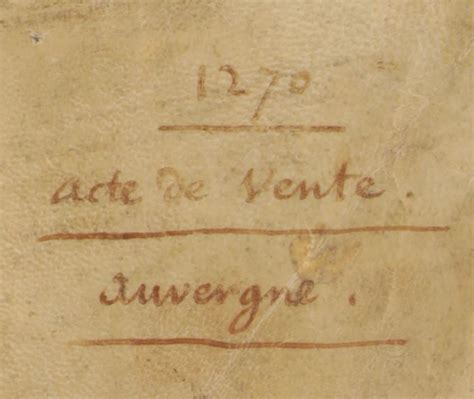 1270
acte de Vente.
Auvergne.